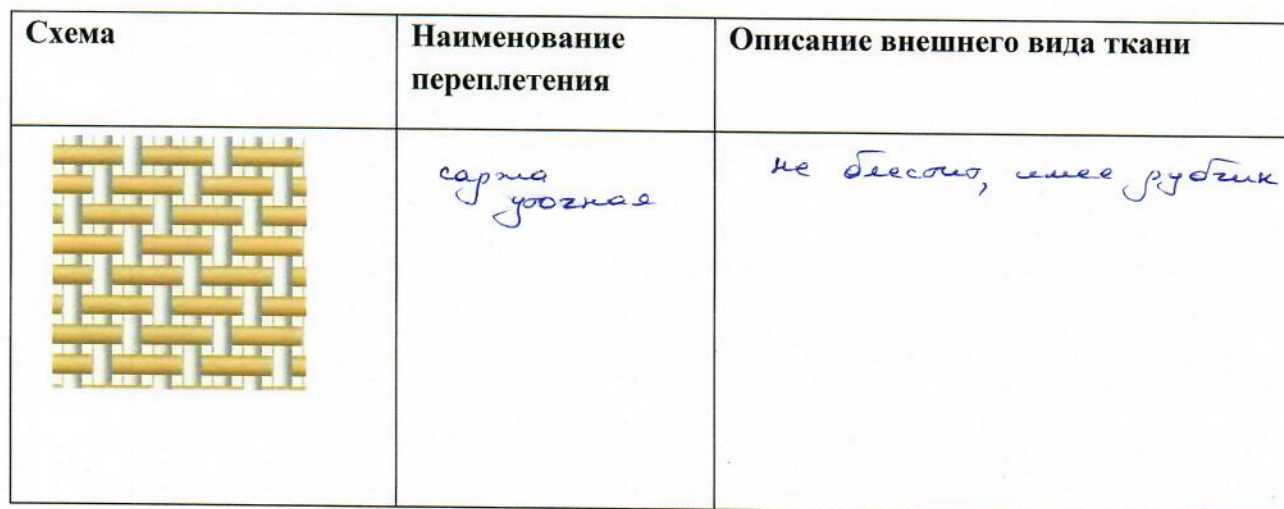 Схема
Наименование
переплетения
Описание внешнего вида ткани
саржа
уточная
не блестит, имее рубчик